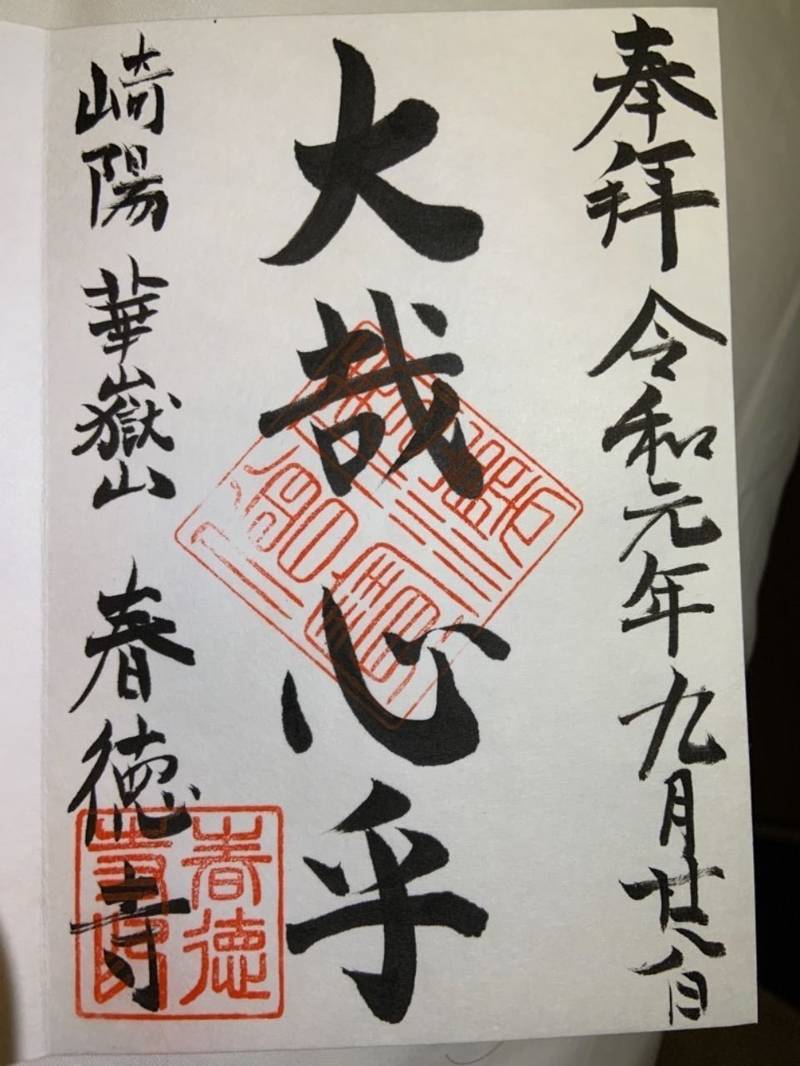 奉拜 令和元年 九月廿八日
大哉心乎
崎陽 華嶽山 春徳寺
春徳
寺印